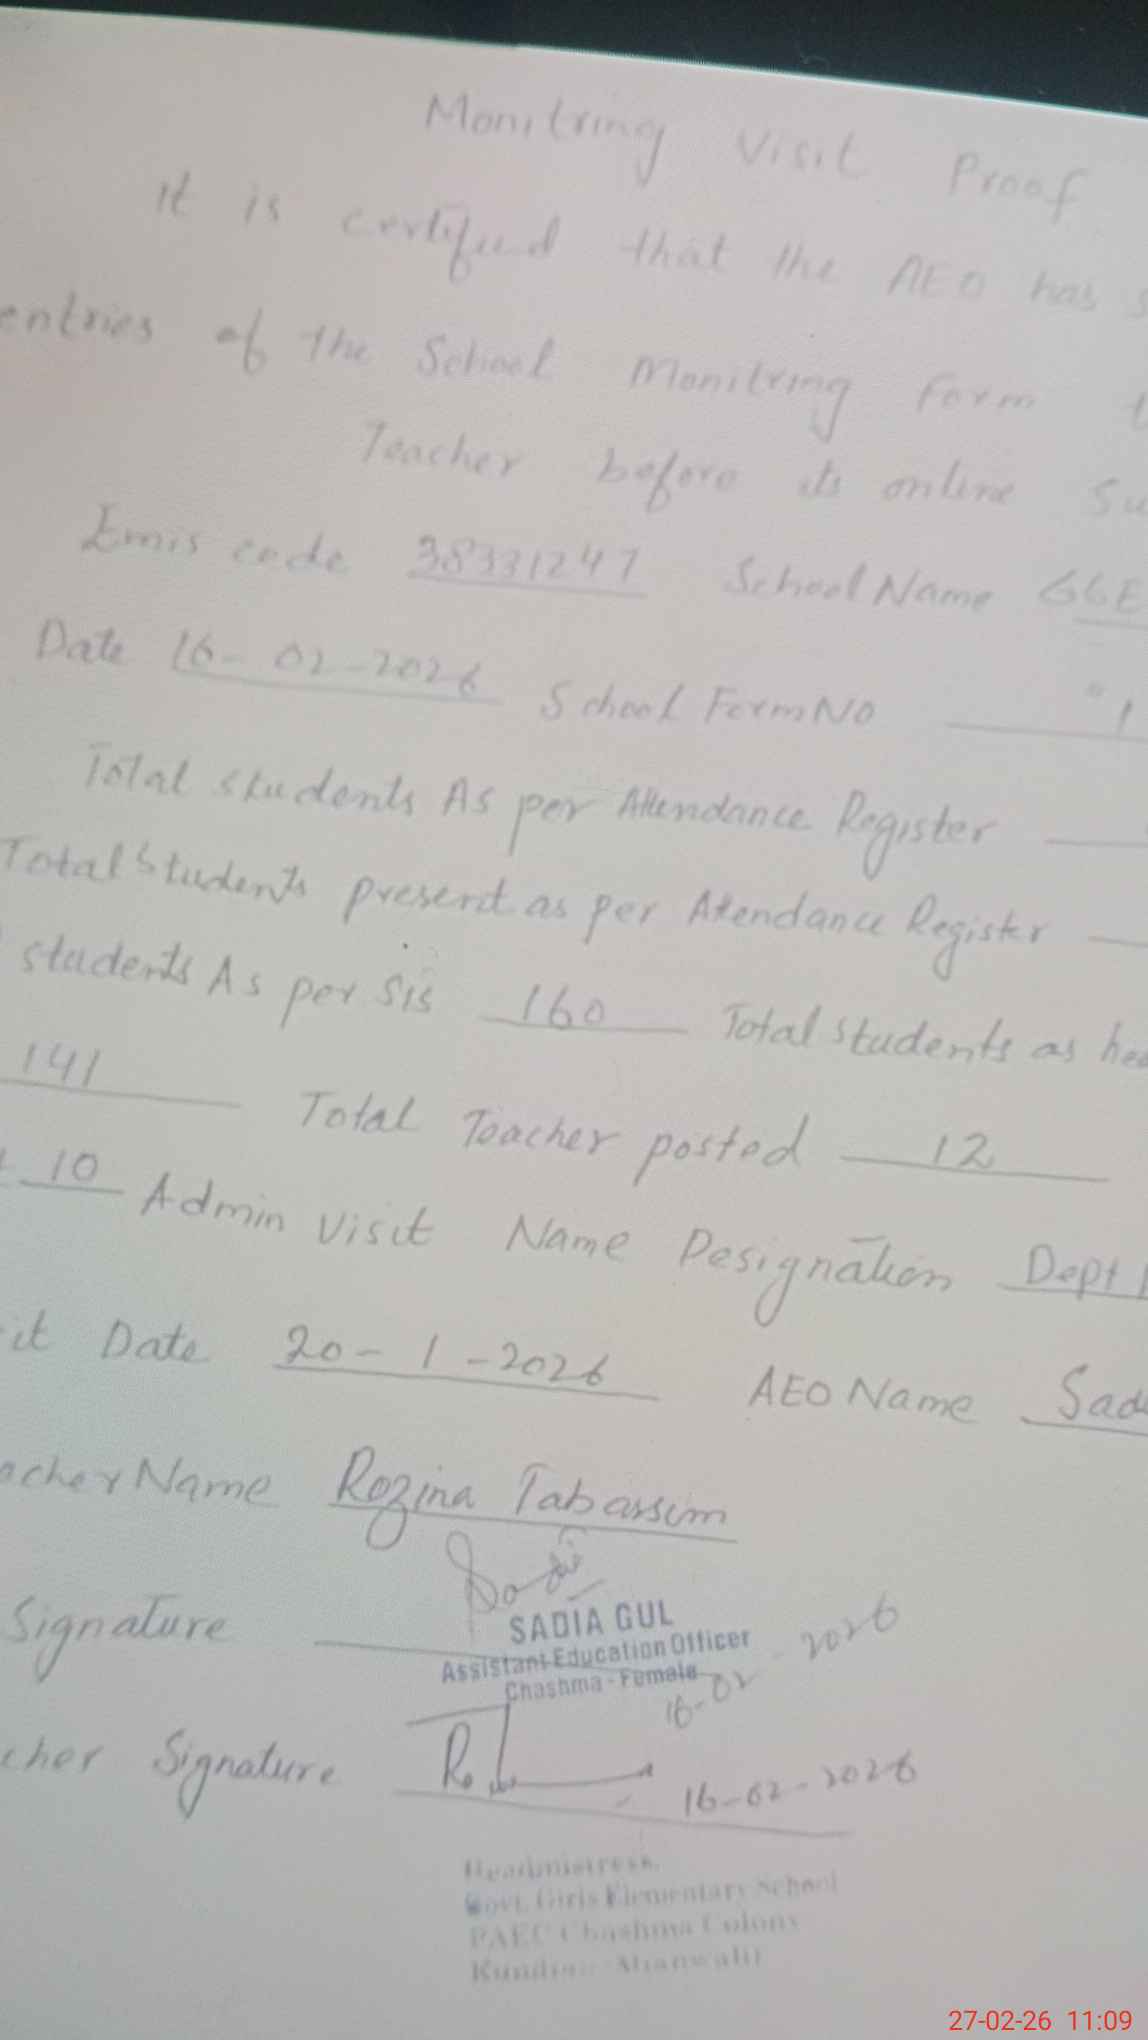 Monitring Visit Proof
It is certified that the AEO has
entries of the School Monitring Form
Teacher before its online Su
Emis code 38331247 School Name GGE
Date 16-02-2026 School Form No 1
Total students As per Attendance Register
Total Students present as per Attendance Register
students As per Sis 160 Total students as hea
141 Total Teacher posted 12
10 Admin Visit Name Designation Dept
it Date 20-1-2026 AEO Name Sad
acher Name Rozina Tabassum
Signature
SADIA GUL
Assistant Education Officer
Chashma-Female
16-02-2026
cher Signature 16-02-2026
Headmistress.
Govt. Girls Elementary School
PAEC Chashma Colony
27-02-26 11:09